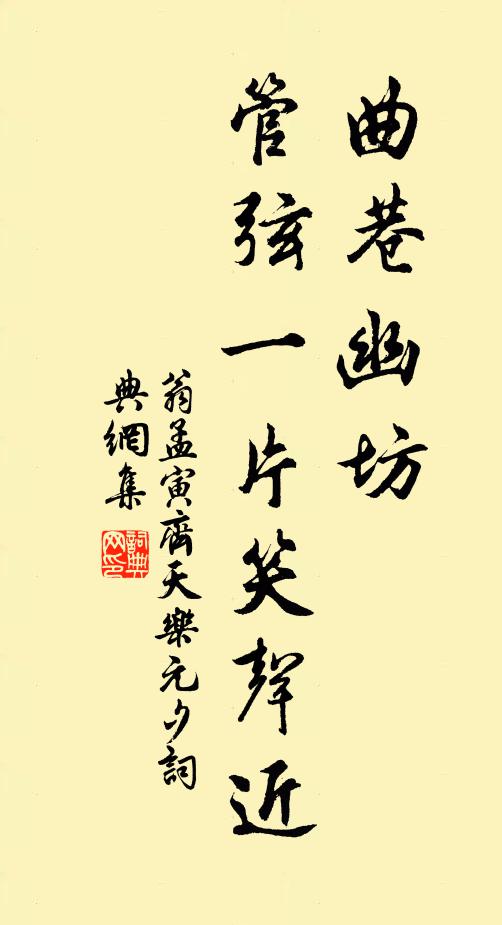 曲巷幽坊
管弦一片笑聲近
翁孟寅齊天樂元夕詞
典網集
詞典
网印